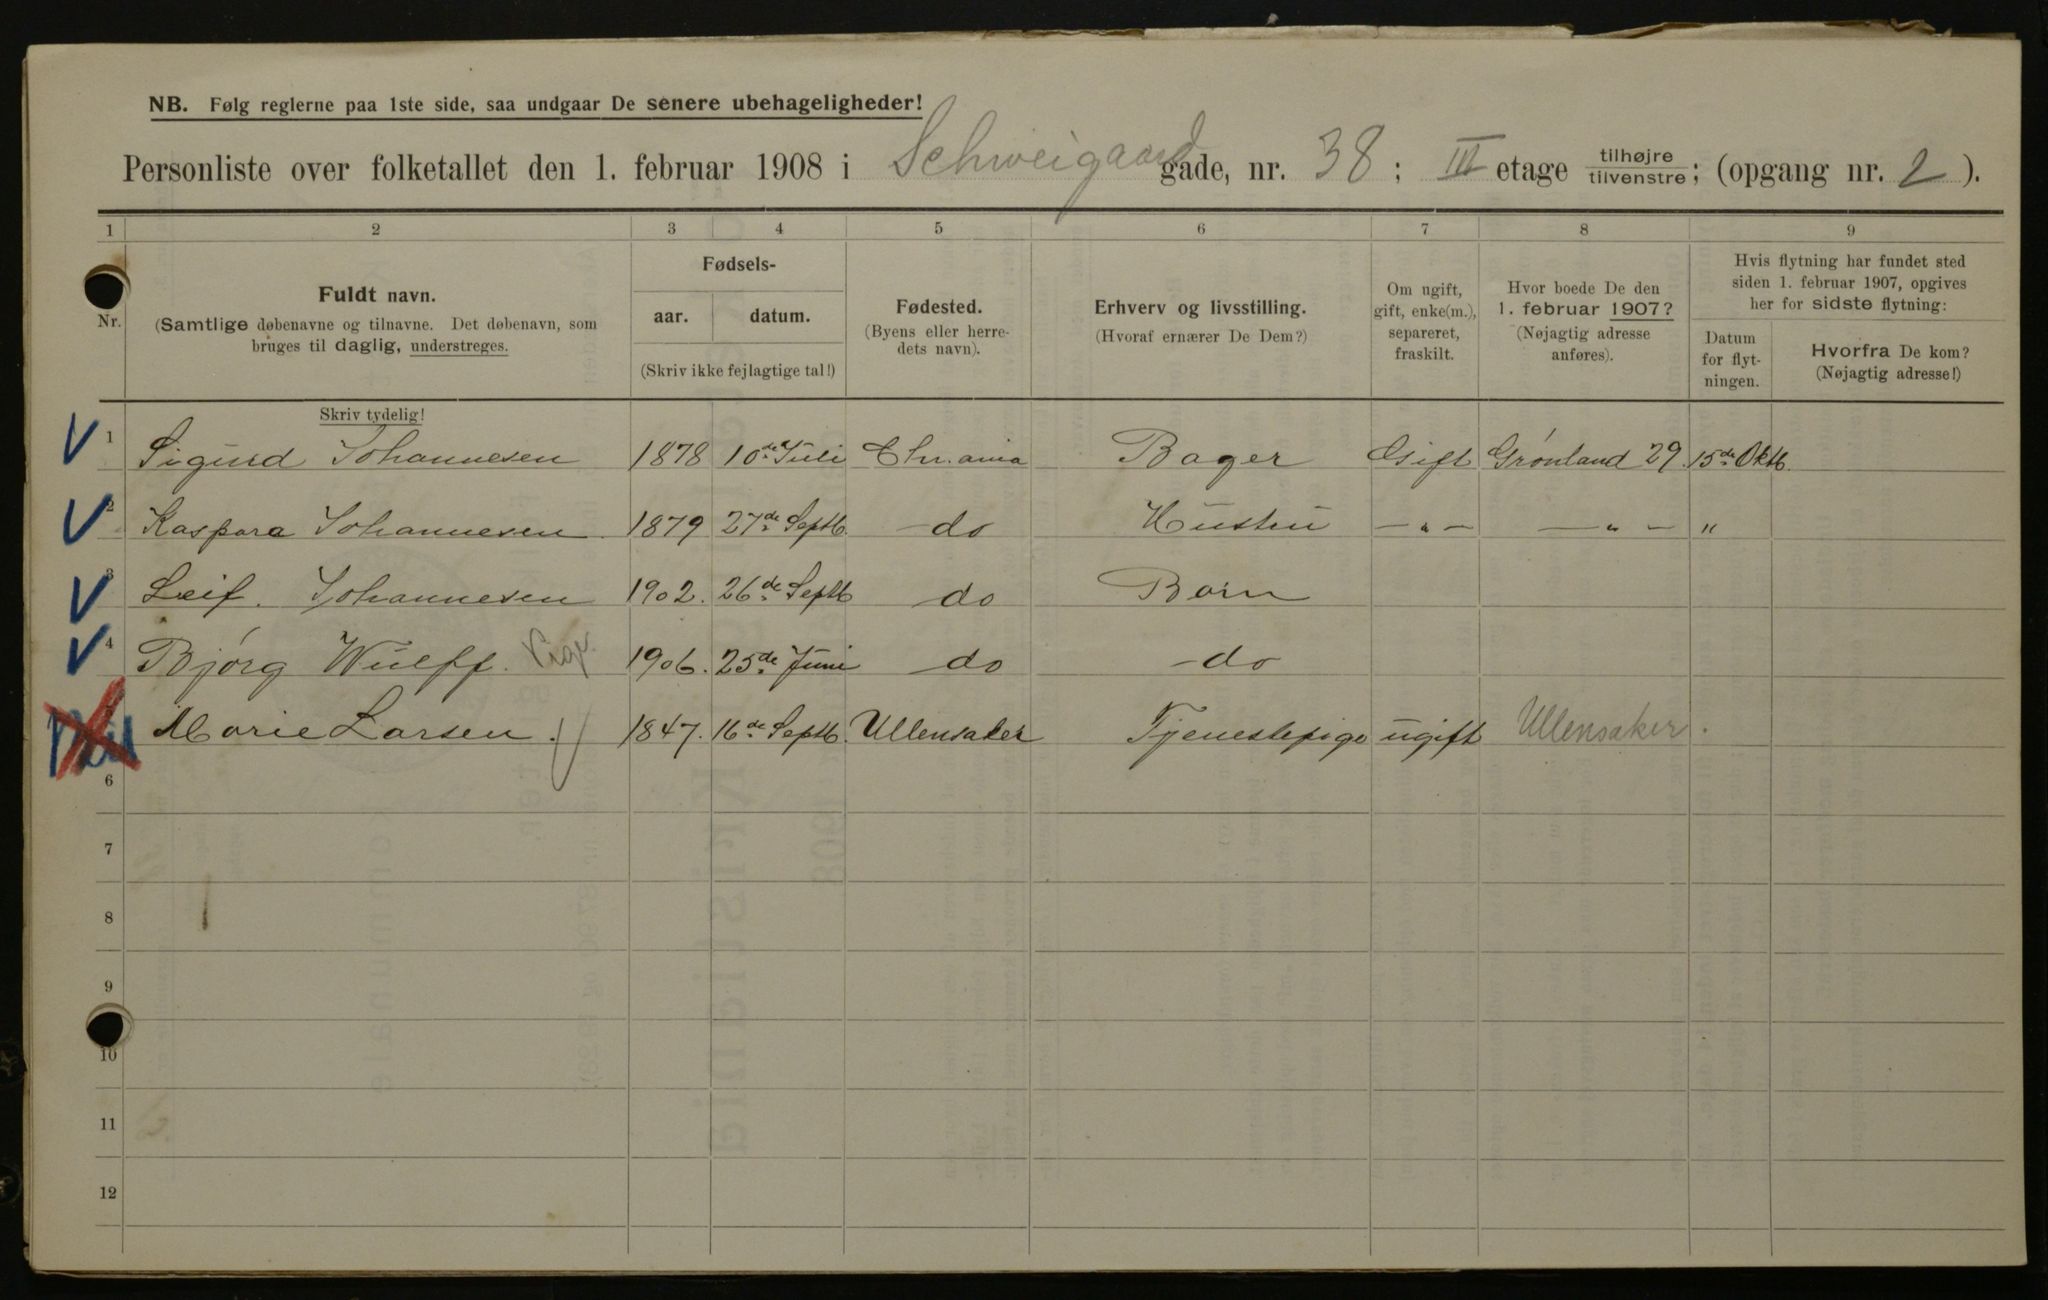 NB. Følg reglerne paa 1ste side, saa undgaar De senere ubehageligheder!
Personliste over folketallet den 1. februar 1908 i Schweigaard gade, nr. 38 ; III etage tilhøjre tilvenstre ; (opgang nr. 2 ).
1 2 3 4 5 6 7 8 9
Nr.
Fuldt navn.
(Samtlige døbenavne og tilnavne. Det døbenavn, som
bruges til daglig, understreges.
Fødsels-
aar. datum.
(Skriv ikke fejlagtige tal!)
Fødested.
(Byens eller herre-
dets navn).
Erhverv og livsstilling.
(Hvoraf ernærer De Dem?)
Om ugift,
gift, enke(m.),
separeret,
fraskilt.
Hvor boede De den
1. februar 1907?
(Nøjagtig adresse
anføres).
Hvis flytning har fundet sted
siden 1. februar 1907, opgives
her for sidste flytning:
Datum
for flyt-
ningen.
Hvorfra De kom?
(Nøjagtig adresse!)
Skriv tydelig!
1 Sigurd Johannesen 1878 10de Juli Chr.ania Bager Gift Grønland 29. 15de Oktb.
2 Kaspara Johannesen 1879 27de Septb. do Hustru — " — — " — "
3 Leif. Johannesen 1902. 26de Septb do Barn
4 Bjørg Wulff. 1906. 25de Juni do do
5 Marie Larsen. 1847. 16de Septb. Ullensaker Tjenestepige ugift Ullensaker.
6
7
8
9
10
11
12